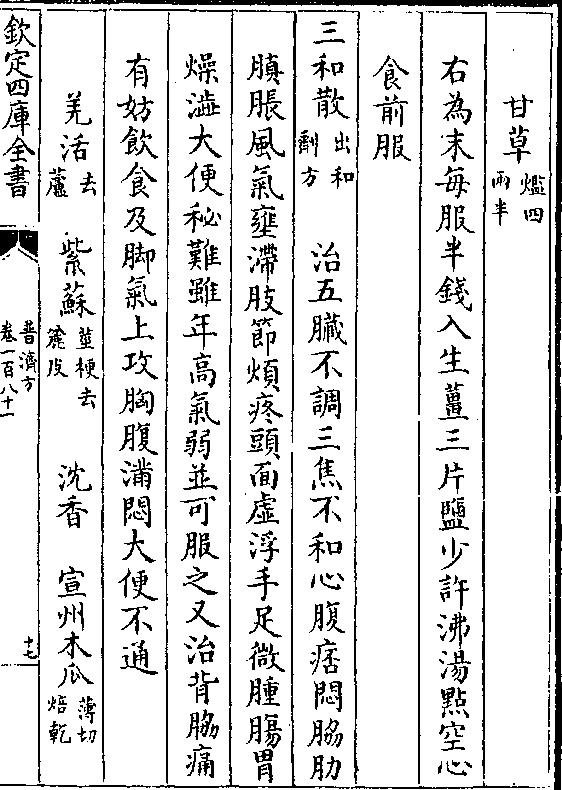 甘草爁四兩半
右為末每服半錢入生薑三片鹽少許沸湯點空心
食前服
三和散出和劑方 治五臟不調三焦不和心腹痞悶脇肋
䐜脹風氣壅滯肢節煩疼頭面虚浮手足微腫腸胃
燥澁大便秘難雖年高氣弱並可服之又治背脇痛
有妨飲食及脚氣上攻胸腹滿悶大便不通
羌活去蘆 紫蘇莖梗去麄皮 沈香 宣州木瓜薄切焙乾
欽定四庫全書 普濟方卷一百八十一 十七